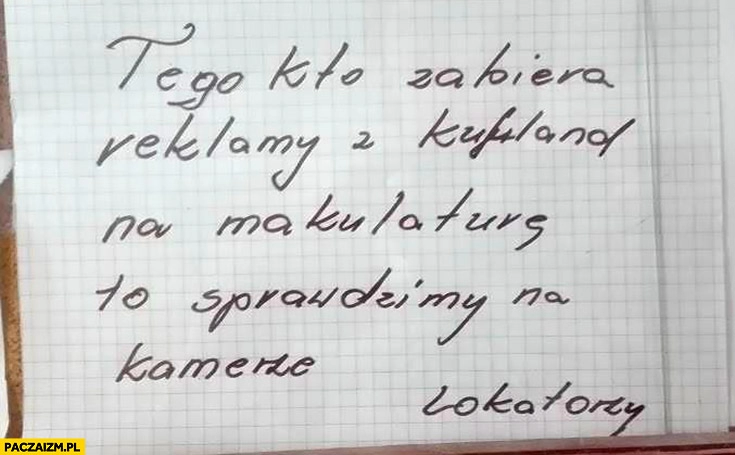 Tego kto zabiera
reklamy z kufland
na makulaturę
to sprawdzimy na
kamerze
Lokatorzy
PACZAIZM.PL